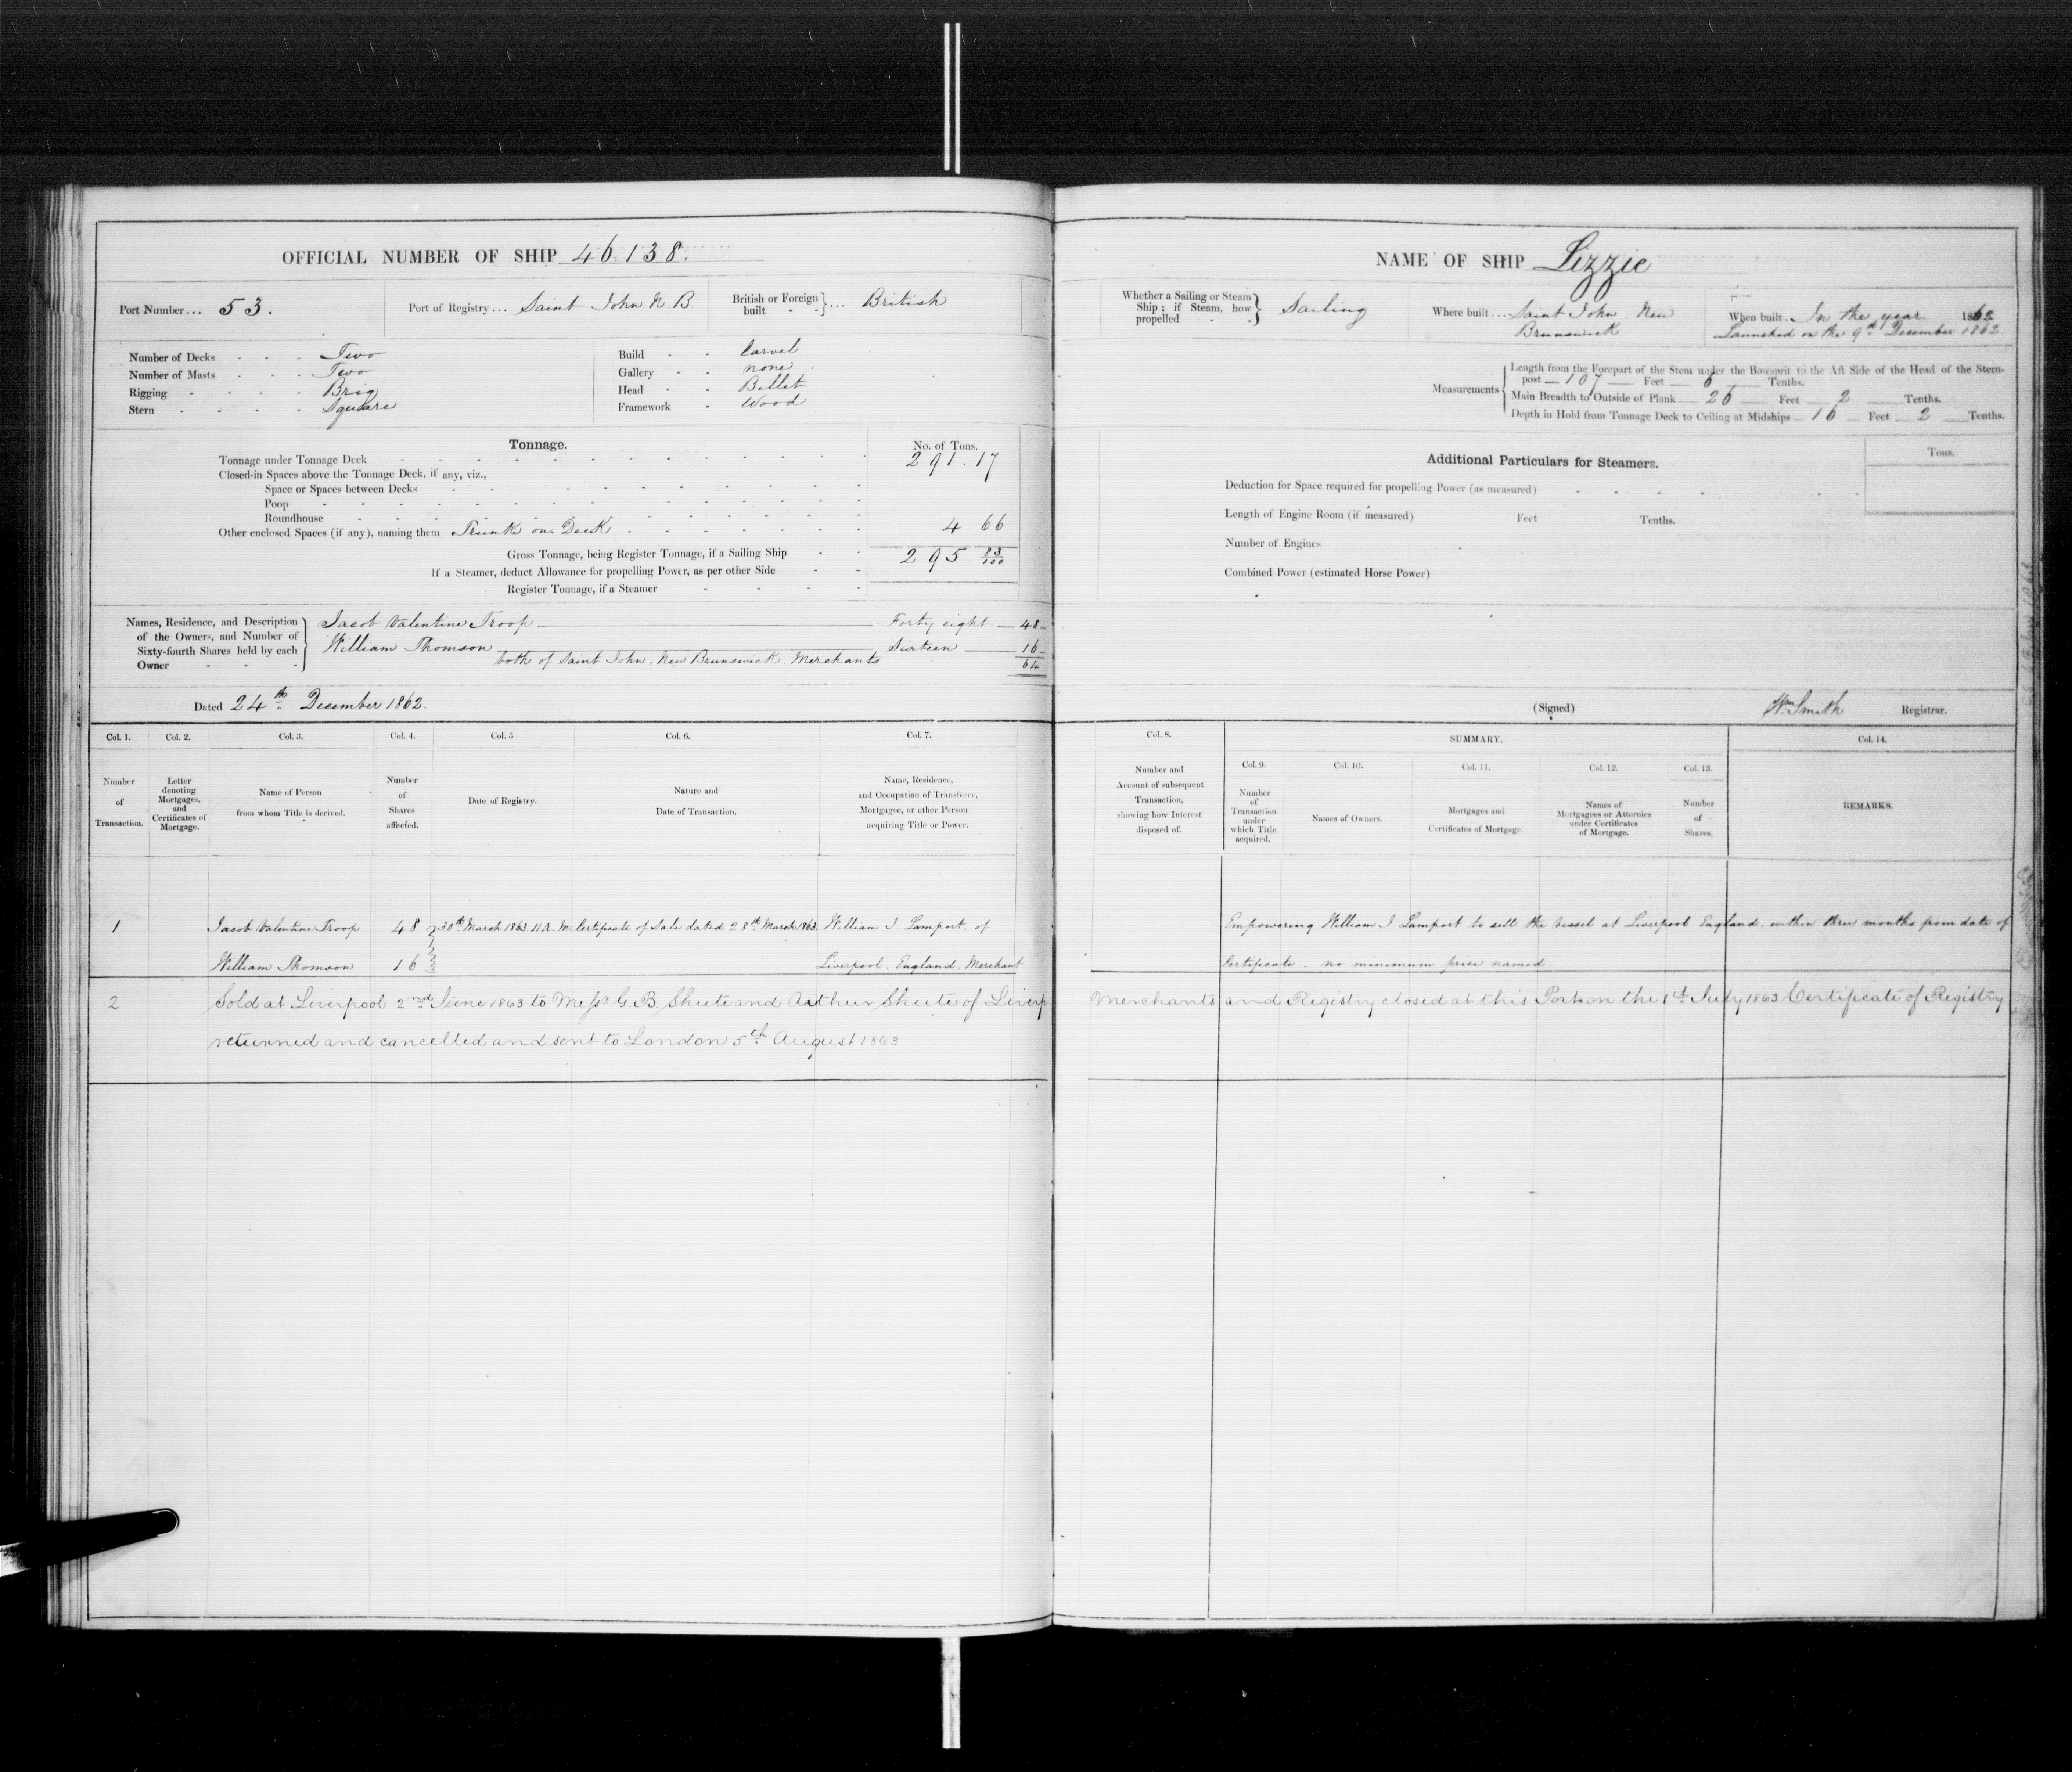 OFFICIAL NUMBER OF SHIP 46.138.
Port Number... 53.
Port of Registry... Saint John N.B.
British or Foreign built } ... British
Number of Decks - - - Two
Number of Masts - - - Two
Rigging - - - - Brig
Stern - - - - Square
Build - - Carvel
Gallery - - none
Head - - Billet
Framework - Wood
Tonnage.
No. of Tons.
Tonnage under Tonnage Deck 291.17
Closed-in Spaces above the Tonnage Deck, if any, viz.,
Space or Spaces between Decks
Poop
Roundhouse
Other enclosed Spaces (if any), naming them Trunk on Deck 4 66
Gross Tonnage, being Register Tonnage, if a Sailing Ship 295 83/100
If a Steamer, deduct Allowance for propelling Power, as per other Side
Register Tonnage, if a Steamer
Names, Residence, and Description of the Owners, and Number of Sixty-fourth Shares held by each Owner
Jacob Valentine Troop — Forty eight — 48
William Thomson — Sixteen — 16
both of Saint John, New Brunswick, Merchants 64
Dated 24th December 1862.
Col. 1. Col. 2. Col. 3. Col. 4. Col. 5 Col. 6. Col. 7.
Number of Transaction.
Letter denoting Mortgages, and Certificates of Mortgage.
Name of Person from whom Title is derived.
Number of Shares affected.
Date of Registry.
Nature and Date of Transaction.
Name, Residence, and Occupation of Transferee, Mortgagee, or other Person acquiring Title or Power.
1 Jacob Valentine Troop 48 30th March 1863. 11 A.M. Certificate of Sale dated 28th March 1863. William J. Lamport, of
William Thomson 16 Liverpool. England. Merchant
2 Sold at Liverpool 2nd June 1863 to Messrs G. B. Shute and Arthur Shute of Liverp
returned and cancelled and sent to London 5th August 1863
NAME OF SHIP Lizzie
Whether a Sailing or Steam Ship; if Steam, how propelled } Sailing
Where built... Saint John New
Brunswick
When built. In the year 1862
Launched on the 9th December 1862.
Measurements
Length from the Forepart of the Stem under the Bowsprit to the Aft Side of the Head of the Stern-
post — 107 — Feet — 6 — Tenths.
Main Breadth to Outside of Plank — 26 — Feet — 2 — Tenths.
Depth in Hold from Tonnage Deck to Ceiling at Midships — 16 — Feet — 2 — Tenths.
Additional Particulars for Steamers.
Tons.
Deduction for Space required for propelling Power (as measured)
Length of Engine Room (if measured) Feet Tenths.
Number of Engines
Combined Power (estimated Horse Power)
(Signed) Wm Smith Registrar.
Col. 8.
SUMMARY.
Col. 14.
Col. 9. Col. 10. Col. 11. Col. 12. Col. 13.
Number and Account of subsequent Transaction, showing how Interest disposed of.
Number of Transaction under which Title acquired.
Names of Owners.
Mortgages and Certificates of Mortgage.
Names of Mortgagees or Attornies under Certificates of Mortgage.
Number of Shares.
REMARKS.
Empowering William J. Lamport to sell the vessel at Liverpool England, within three months from date of
Certificate. no minimum price named.
Merchants and Registry closed at this Port on the 1st July 1863 Certificate of Registry